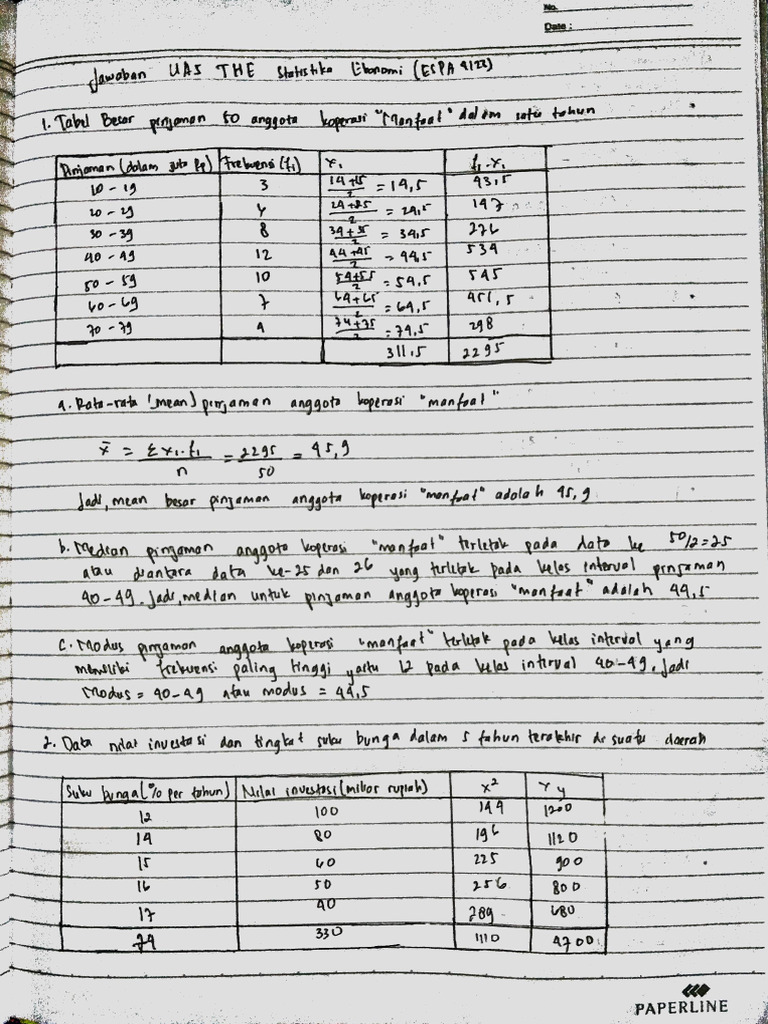 No.
Date :
Jawaban UAS THE Statistika Ekonomi (ESPA 4123)
1. Tabel Besar pinjaman 50 anggota koperasi "Manfaat" dalam satu tahun
Pinjaman (dalam juta Rp) Frekuensi (f₁) x₁ f₁.x₁
10 - 19 3 14+15/2 = 14,5 43,5
20 - 29 6 24+25/2 = 24,5 147
30 - 39 8 34+35/2 = 34,5 276
40 - 49 12 44+45/2 = 44,5 534
50 - 59 10 54+55/2 = 54,5 545
60 - 69 7 64+65/2 = 64,5 451,5
70 - 79 4 74+75/2 = 74,5 298
311,5 2295
a. Rata-rata (mean) pinjaman anggota koperasi "manfaat"
x̄ = Σ x₁.f₁/n = 2295/50 = 45,9
Jadi, mean besar pinjaman anggota koperasi "manfaat" adalah 45,9
b. Median pinjaman anggota koperasi "manfaat" terletak pada data ke 50/2=25
atau diantara data ke-25 dan 26 yang terletak pada kelas interval pinjaman
40-49. Jadi, median untuk pinjaman anggota koperasi "manfaat" adalah 44,5
c. Modus pinjaman anggota koperasi "manfaat" terletak pada kelas interval yang
memiliki frekuensi paling tinggi yaitu 12 pada kelas interval 40-49. Jadi
Modus = 40-49 atau modus = 44,5
2. Data nilai investasi dan tingkat suku bunga dalam 5 tahun terakhir di suatu daerah
Suku bunga (% per tahun) Nilai investasi (miliar rupiah) x² xy
12 100 144 1200
14 80 196 1120
15 60 225 900
16 50 256 800
17 40 289 680
74 330 1110 4700
PAPERLINE